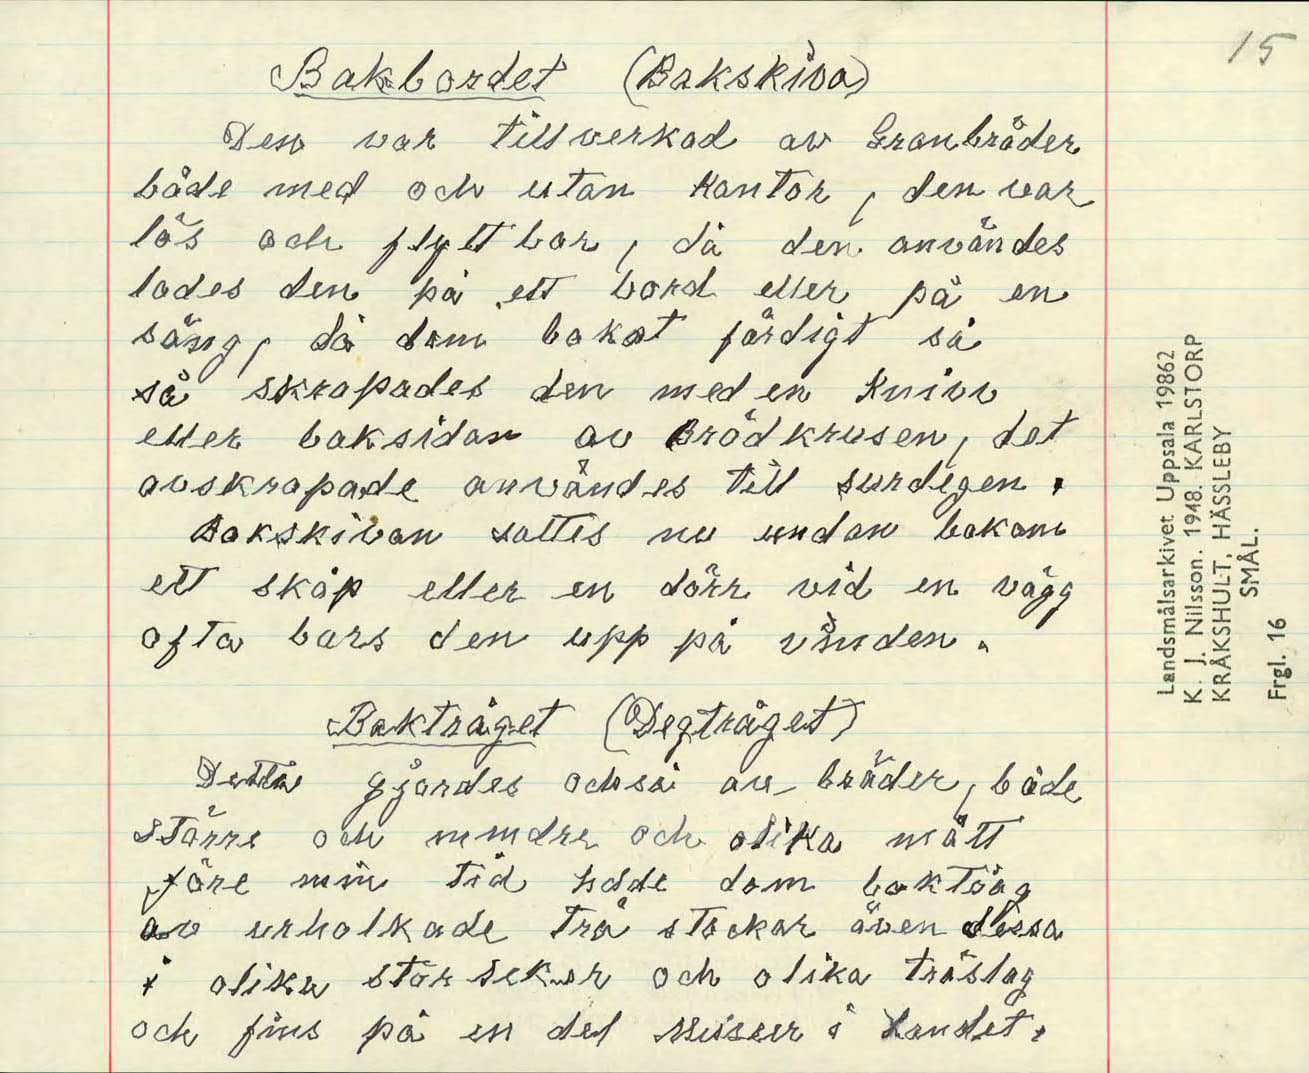 15
Bakbordet (Bakskiva)
Den var tillverkad av Granbräder
både med och utan Kantor, den var
lös och flyttbar, då den användes
lades den på ett bord eller på en
säng, då dom bakat färdigt så
så skrapades den med en Kniv
eller baksidan av Brödkrusen, det
avskrapade användes till surdegen.
Bakskivan sattes nu undan bakom
ett skåp eller en dörr vid en vägg
ofta bars den upp på vinden.
Baktråget (Degtråget)
Detta gjordes också av bräder, både
större och mindre och olika mått
före min tid hade dom baktråg
av urholkade trä stockar även dessa
i olika storlekar och olika träslag
och fins på en del Museer i Landet.
Landsmålsarkivet Uppsala 19862
K. J. Nilsson. 1948. KARLSTORP
KRÅKSHULT, HÄSSLEBY
SMÅL.
Frgl. 16